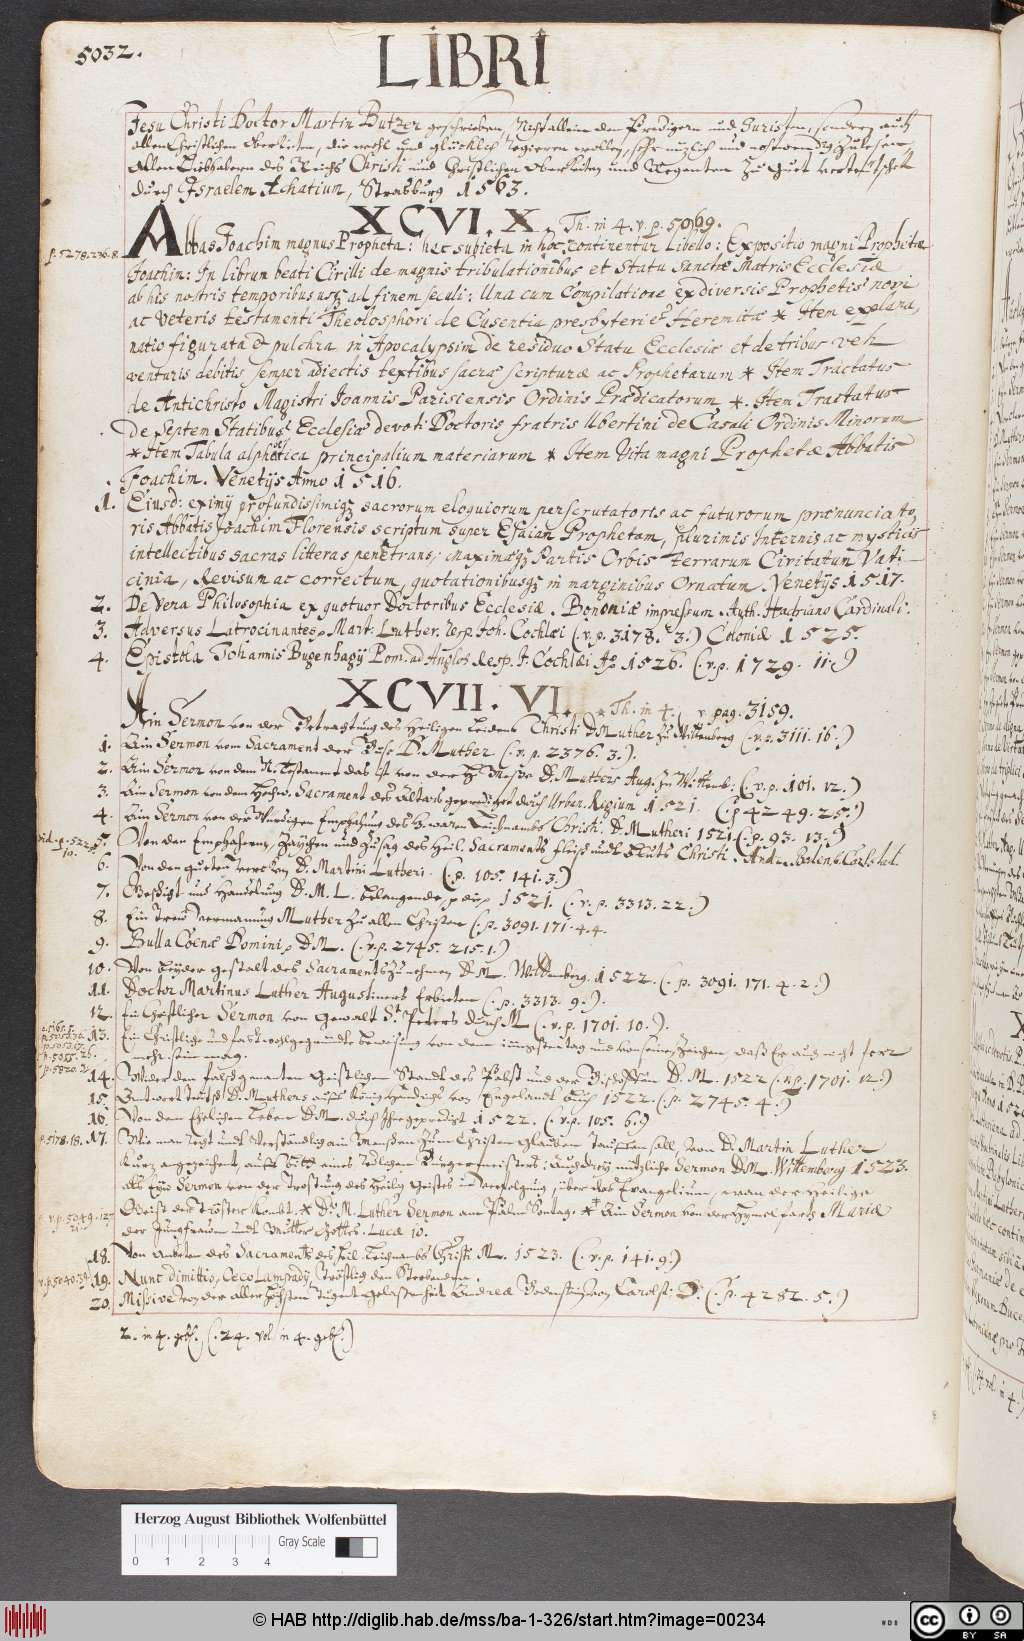 5032.
LIBRI
Jesu Christi Doctor Martin Butzer geschrieben, Nicht allein den Predigern und Juristen, sondern auch
allen Christlichen Oberkeiten, die recht und glücklich Regieren wollen, sehr nuzlich und notwendig zu lesen,
Allen Liebhabern des Reichs Christi und Christlichen Oberkeiten und Regenten zu Guet verteutschet
durch Israelem Achatium, Strasburg 1563.
XCVI. X. Th. in 4. v. p. 5069.
p. 5278. 236. 8.
Abbas Joachim magnus Propheta: hæc subjeta in hoc continentur Libello: Expositio magni Prophetæ
Joachim: In librum beati Cirilli de magnis tribulationibus et Statu Sanctæ Matris Ecclesiæ
ab his nostris temporibus usq ad finem seculi: Una cum Compilatione ex diversis Prophetis novi
ac Veteris testamenti Theolosphori de Cusentia presbyteri & Heremitæ * Item explana,
natio figurata & pulchra in Apocalypsim de residuo Statu Ecclesiæ et de tribus veh
venturis debitis semper adiectis textibus sacræ scripturæ ac Prophetarum * Item Tractatus
de Antichristo Magistri Joannis Parisiensis Ordinis Prædicatorum *. Item Tractatus
de Septem Statibus Ecclesiæ devoti Doctoris fratris Ubertini de Casali Ordinis Minorum
* Item Tabula alphabetica principalium materiarum * Item Vita magni Prophetæ Abbatis
Joachim. Venetijs Anno 1516.
1. Eiusd: eximij profundissimiq sacrorum eloquiorum perscrutatoris ac futurorum prænunciato,
ris Abbatis Joachim Florensis scriptum super Esaiam Prophetam, plurimis Internis ac mysticis
intellectibus sacras litteras penetrans, maximæq Partis Orbis terrarum Civitatum Vati-
cinia, Revisum ac correctum, quotationibusq in marginibus Ornatum. Venetijs 1517.
2. De Vera Philosophia ex quotuor Doctoribus Ecclesiæ. Bononiæ impressum. Auth. Hadriano Cardinali.
3. Adversus Latrocinantes, Mart. Luther. Resp. Joh. Cochlæi (.v.p. 3178. 3.) Coloniæ 1525.
4. Epistola Johannis Bugenhagij Pom. ad Anglos Resp. J. Cochlæi Ao 1526. (.v.p. 1729. 11.)
XCVII. VI. Th. in 4. (v. pag. 3159.
Ain Sermon von der Betrachtung des Heiligen Leidens Christi D. Muther zu Wittenberg (.v.p. 3111. 16.)
1. Ain Sermon vom Sacrament der Buss D. Muther (.v.p. 2376. 3.).
2. Ain Sermon von dem N. Testament das ist von der H. Messe D. Muthers Aug. zu Wittemb: (.v.p. 101. 12.)
3. Ain Sermon von dem Hochw. Sacrament des Altars geprediget durch Urban. Regium 1521. (.p. 4249. 25.)
4. Ain Sermon von der Würdigen Empfahung des H. waren Leichnambs Christi. D. Mutheri 1521 (.p. 93. 13.)
5. Von den Empfahern, Zaychen und Zusag des Heil. Sacraments fleisch undt Bluts Christi. Andr. Bolenb. Carlstat.
6. Von den gueten wercken D. Martini Lutheri. (.p. 105. 141. 3.)
7. und Handlung D. M. L. belangende 1521. (.v.p. 3313. 22.)
8. Ein Treu Vermanung Muther zu allen Christen (.p. 3091. 171. 4. 4.
9. Bulla Coenæ Domini, D. M. (.v.p. 2745. 215. 1.)
10. Von beyder gestalt des Sacraments zu nehmen D. M. Wittenberg. 1522. (.p. 3091. 171. 4. 2.)
11. Doctor Martinus Luther Augustiners Erbieten (.p. 3313. 9.).
12. Ein Christlicher Sermon von Gewalt St. Peters durch M (.v.p. 1701. 10.).
13. Ein Christliche und fast wohlgegründte beweisung von dem iungstentag und von seinen Zeichen, dass Er auch nicht ferr
mehr sein mag.
14. Wider den falsch genanten Geistlichen Standt des Pabst und der Bischoffen D. M. 1522 (.v.p. 1701. 12.)
15. Antwort teutsch D. Muthers auff König Heinrichs von Engelandt Buch 1522. (.p. 2745. 4.)
16. Von dem Ehelichen Leben D. M. durch Ihn gepredigt 1522. (.v.p. 105. 6.)
p. 5178. 18. 17. Wie man recht undt Verständig ain Menschen zum Christen Glauben Tauffen soll von D. Martin Luther
Kurz angezeichnet, auff bitt eines Burgermeisters: Auch drey nuzliche Sermon D. M. Wittemberg 1523.
als Eyn Sermon von der Trostung des Heilig Geistes in verfolgung, über das Evangelium, wan der Heilige
v.p. 5049. 125.
Geist der Tröster kombt. * D. M. Luther Sermon am Palm Sontag. * Ain Sermon von der Hymelfart Mariæ
der Jungfrauen undt Mutter Gottes. Lucæ 10.
18. Von Anbeten des Sacraments des Heil. Leichnambs Christi M. 1523. (.v.p. 141. 9.)
19. Nunc dimittis, Oecolampadij, Tröstlig den Sterbenden.
20. Missive von der aller Höchsten tugent gelassenheit Andreæ Bodenstein von Carolst. D. (.p. 4282. 5.)
2. in 4. geb. (.24. vol. in 4. geb.)
Herzog August Bibliothek Wolfenbüttel
Gray Scale
0 1 2 3 4
© HAB http://diglib.hab.de/mss/ba-1-326/start.htm?image=00234
WDB
cc BY SA